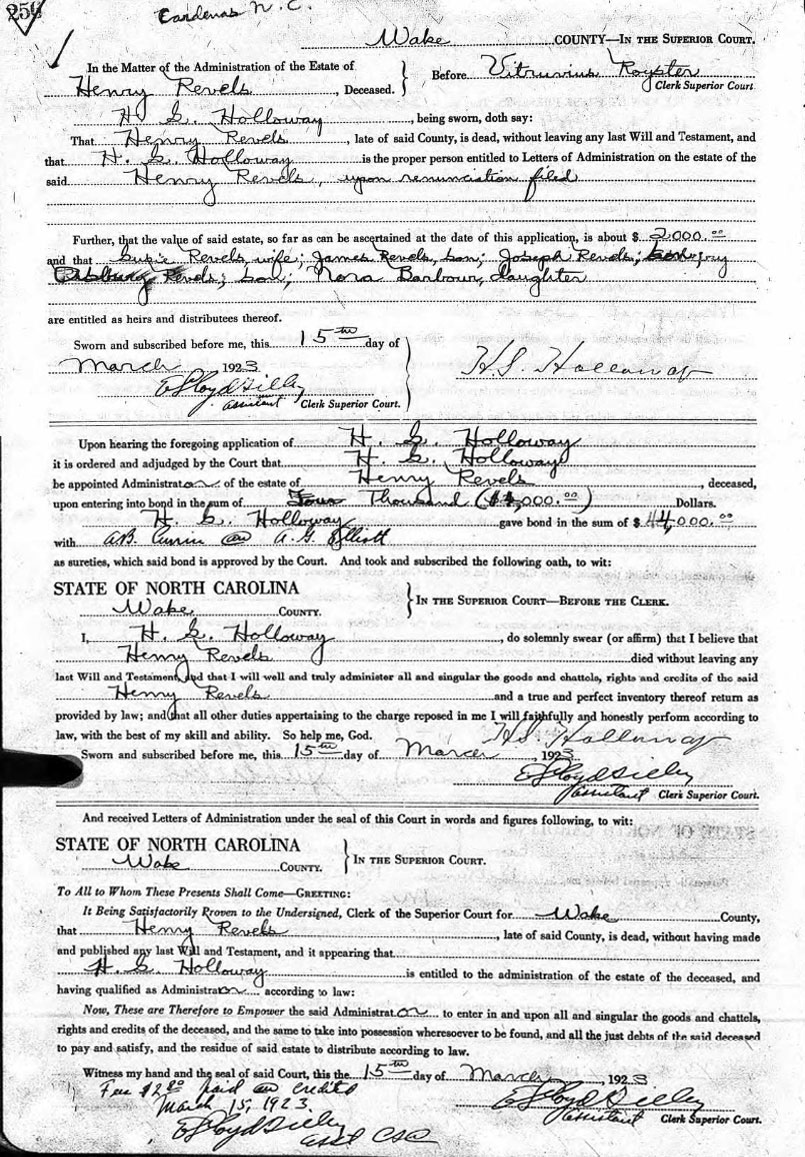 256
Cardenas N. C.
Wake COUNTY—IN THE SUPERIOR COURT.
In the Matter of the Administration of the Estate of
Henry Revels, Deceased.
Before Vitruvius Royster
Clerk Superior Court
H. S. Holloway, being sworn, doth say:
That Henry Revels, late of said County, is dead, without leaving any last Will and Testament, and
that H. S. Holloway is the proper person entitled to Letters of Administration on the estate of the
said Henry Revels, upon renunciation filed
Further, that the value of said estate, so far as can be ascertained at the date of this application, is about $ 2000.00
and that Susie Revels, wife; James Revels, son; Joseph Revels; son;
Revels; son; Nora Barbour, daughter
are entitled as heirs and distributees thereof.
Sworn and subscribed before me, this 15th day of
March 1923
H. S. Holloway
assistant Clerk Superior Court.
Upon hearing the foregoing application of H. S. Holloway
it is ordered and adjudged by the Court that H. S. Holloway
be appointed Administrator of the estate of Henry Revels, deceased,
upon entering into bond in the sum of Four Thousand ($4,000.00) Dollars.
H. S. Holloway gave bond in the sum of $ 4,000.00
with A.B. Currin and A. G. Elliott
as sureties, which said bond is approved by the Court. And took and subscribed the following oath, to wit:
STATE OF NORTH CAROLINA
Wake COUNTY.
IN THE SUPERIOR COURT—BEFORE THE CLERK.
I, H. S. Holloway, do solemnly swear (or affirm) that I believe that
Henry Revels died without leaving any
last Will and Testament, and that I will well and truly administer all and singular the goods and chattels, rights and credits of the said
Henry Revels and a true and perfect inventory thereof return as
provided by law; and that all other duties appertaising to the charge reposed in me I will faithfully and honestly perform according to
law, with the best of my skill and ability. So help me, God.
H. S. Holloway
Sworn and subscribed before me, this 15th day of March, 1923
assistant Clerk Superior Court.
And received Letters of Administration under the seal of this Court in words and figures following, to wit:
STATE OF NORTH CAROLINA
Wake COUNTY.
IN THE SUPERIOR COURT.
To All to Whom These Presents Shall Come—GREETING:
It Being Satisfactorily Proven to the Undersigned, Clerk of the Superior Court for Wake County,
that Henry Revels, late of said County, is dead, without having made
and published any last Will and Testament, and it appearing that
H. S. Holloway is entitled to the administration of the estate of the deceased, and
having qualified as Administrator according to law:
Now, These are Therefore to Empower the said Administrator to enter in and upon all and singular the goods and chattels,
rights and credits of the deceased, and the same to take into possession wheresoever to be found, and all the just debts of the said deceased
to pay and satisfy, and the residue of said estate to distribute according to law.
Witness my hand and the seal of said Court, this the 15th day of March, 1923
Fee $2.80 paid and credited
March 15, 1923.
asst CSC
assistant Clerk Superior Court.